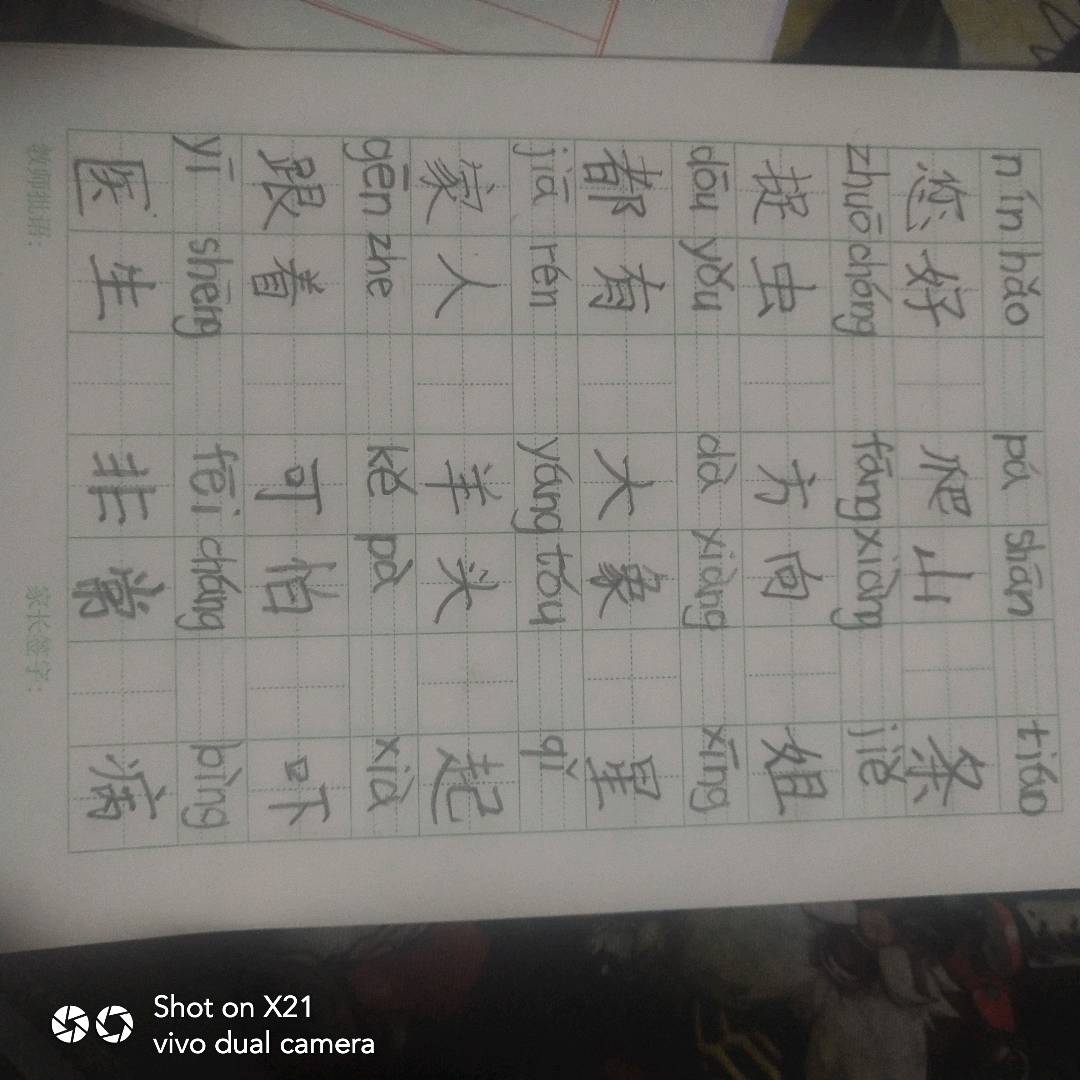 nín hǎo pá shān tiáo
您好 爬山 条
zhuō chóng fāng xiàng jiě
捉虫 方向 姐
dōu yǒu dà xiàng xīng
都有 大象 星
jiā rén yáng tóu qǐ
家人 羊头 起
gēn zhe kě pà xià
跟着 可怕 吓
yī shēng fēi cháng bìng
医生 非常 病
教师批阅: 家长签字:
Shot on X21
vivo dual camera